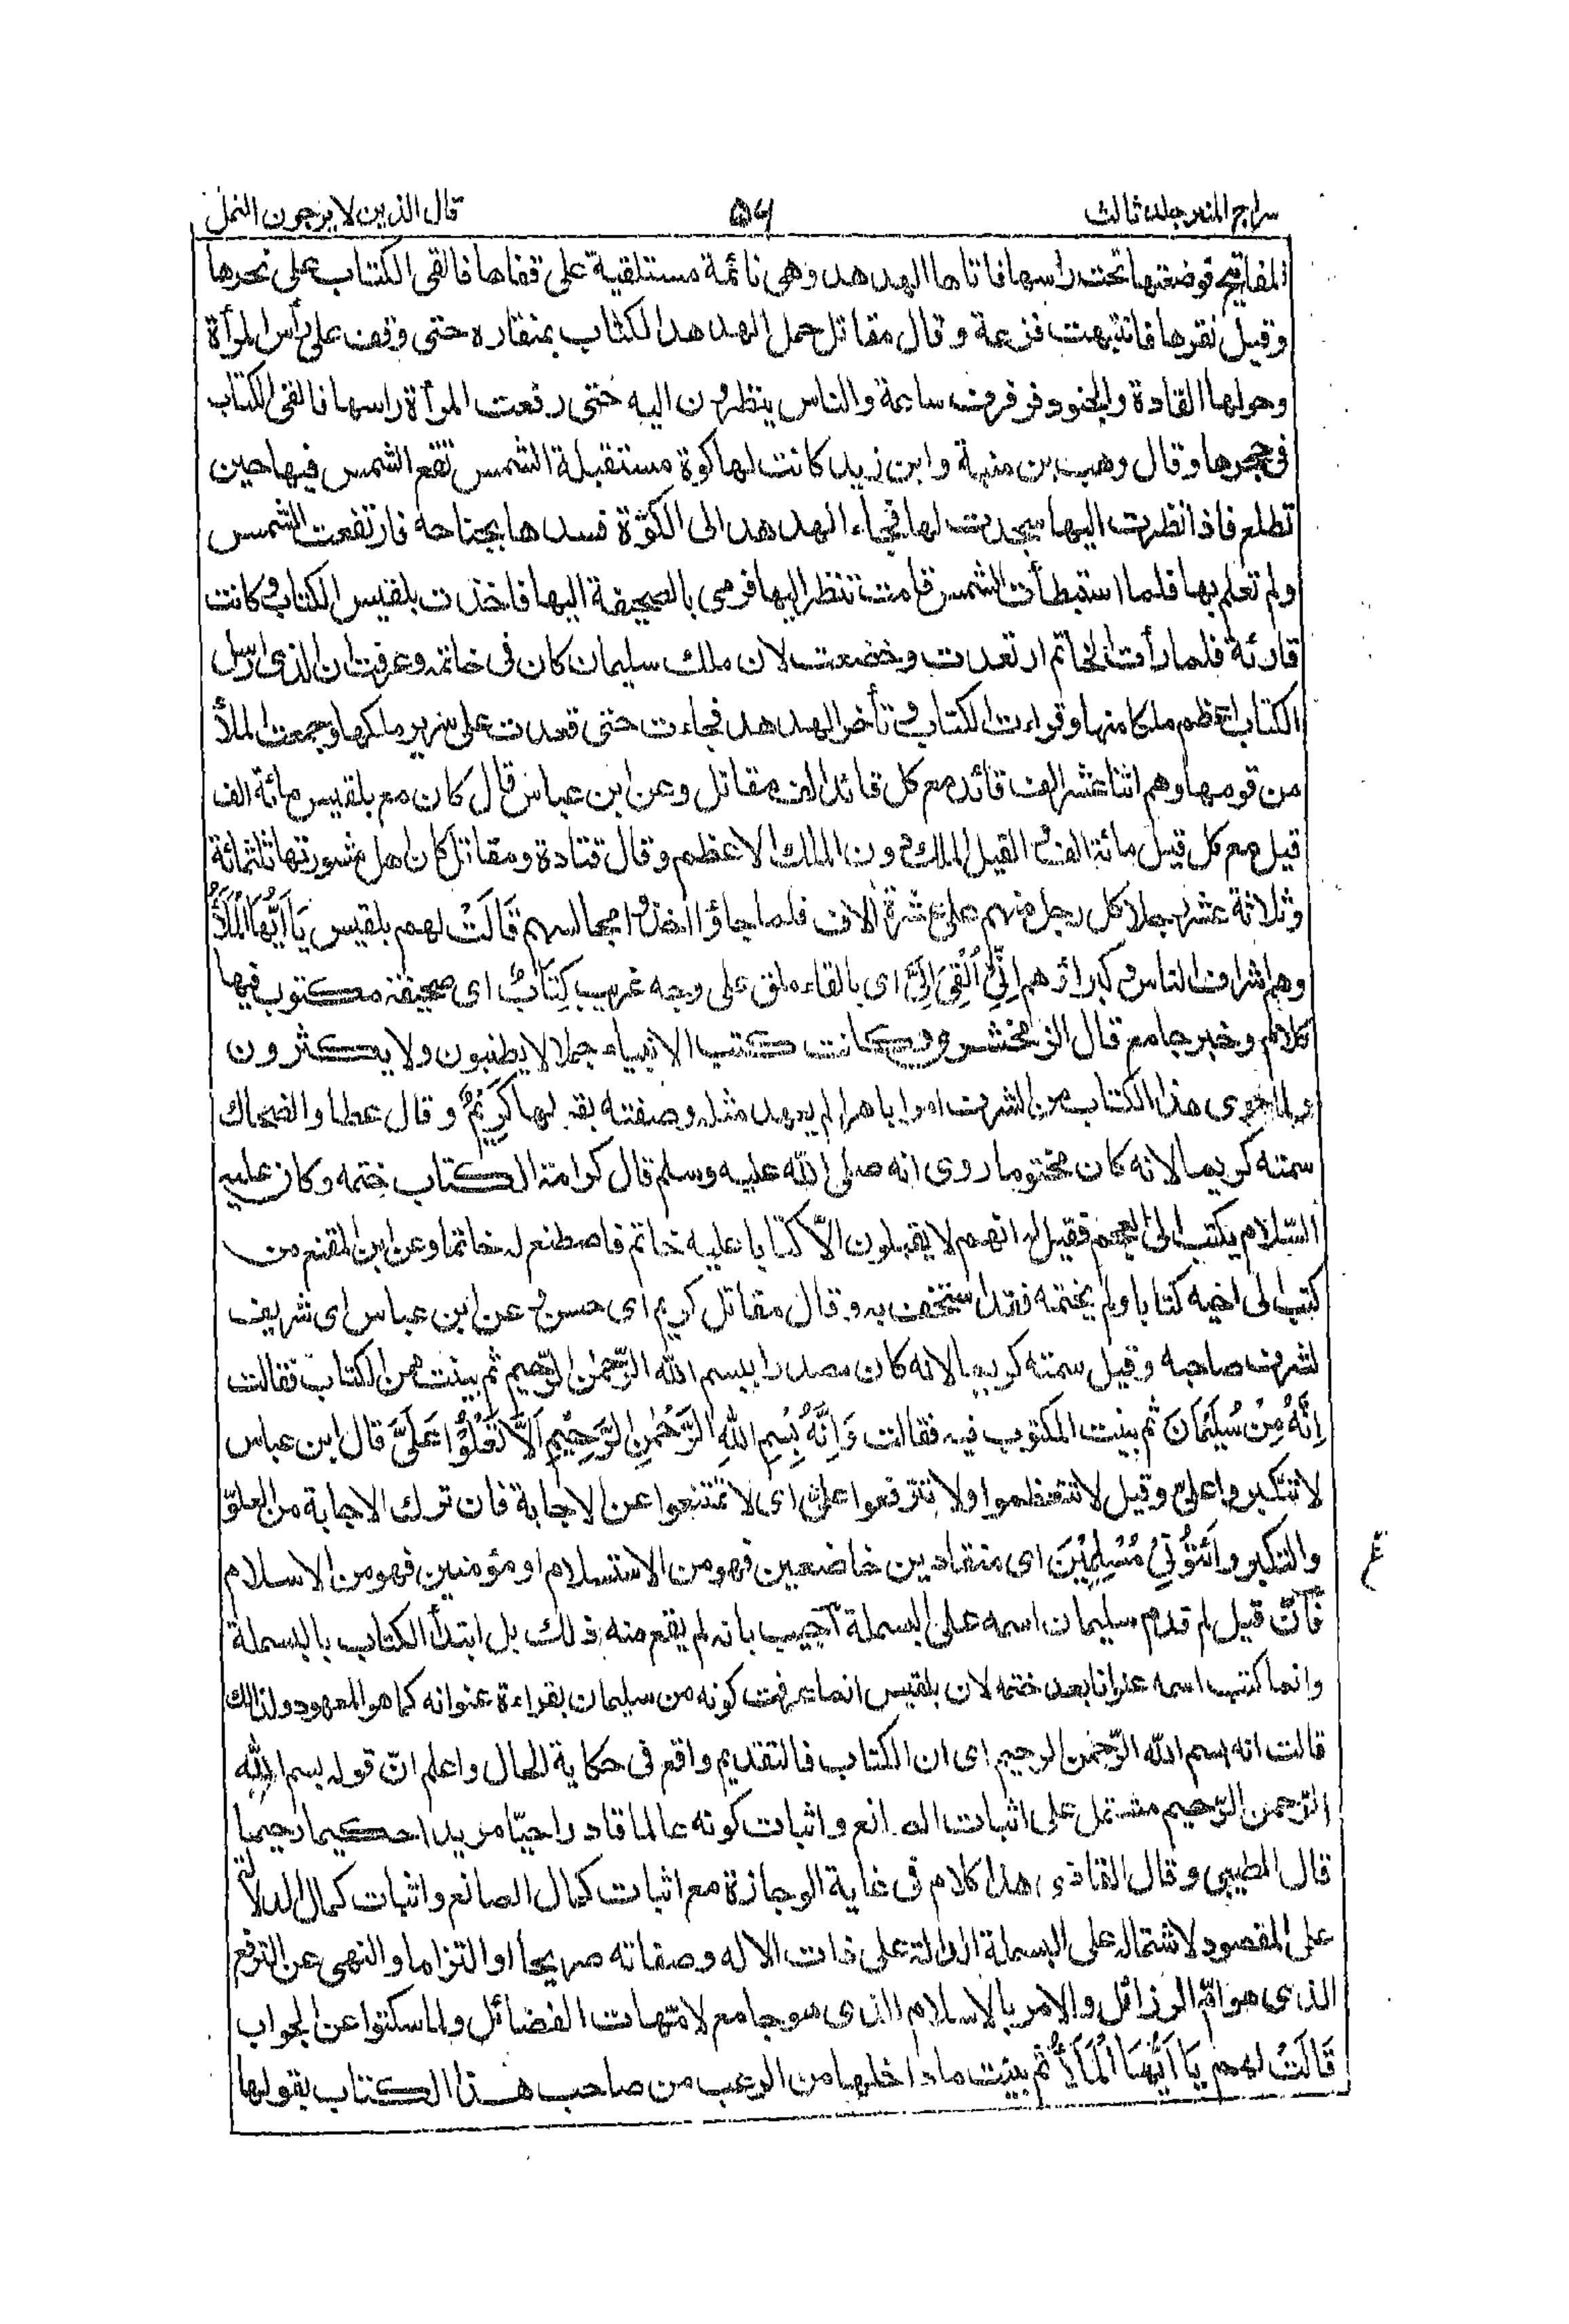 سراج المنير جلد ثالث
٥٦
قال الذين لا يرجون النمل
المفاتيح فوضعتها تحت راسها فاتاها الهدهد وهى نائمة مستلقية على قفاها فالقى الكتاب على نحرها
وقيل نقرها فانتبهت فزعة وقال مقاتل حمل الهدهد الكتاب بمنقاره حتى وقف على رأس المرأة
وحولها القادة والجنود فرفرف ساعة والناس ينظرون اليه حتى رفعت المرأة راسها فالقى الكتاب
فى حجرها وقال وهب بن منبه وابن زيد كانت لها كوة مستقبلة الشمس تقع الشمس فيها حين
تطلع فاذا نظرت اليها سجدت لها فجاء الهدهد الى الكوة فسدها بجناحه فارتفعت الشمس
ولم تعلم بها فلما استبطأت الشمس قامت تنظر اليها فرمى بالصحيفة اليها فاخذت بلقيس الكتاب وكانت
قارئة فلما رأت الخاتم ارتعدت وخضعت لان ملك سليمان كان فى خاتمه وعرفت ان الذى ارسل
الكتاب اعظم ملكا منها وقراءت الكتاب وتأخر الهدهد فجاءت حتى قعدت على سرير ملكها وجمعت الملأ
من قومها وهم اثنا عشر الف قائد مع كل قائد الف مقاتل وعن ابن عباس قال كان مع بلقيس مائة الف
قيل مع كل قيل مائة الف والقيل الملك دون الملك الاعظم وقال قتادة ومقاتل كان اهل مشورتها ثلثمائة
وثلاثة عشر رجلا كل رجل منهم على عشرة آلاف فلما جاؤا اخذوا مجالسهم قَالَتْ لهم بلقيس يَا اَيُّهَا الْمَلَأُ
وهم اشراف الناس وكبراؤهم اِنِّيْ اُلْقِىَ اِلَيَّ اى بالقاء ملق على وجه غريب كِتَابٌ اى صحيفة مكتوب فيها
كلام وخبر جامع قال الزمخشرى وكانت كتب الانبياء جملا لا يطنبون ولا يكثرون
ولما حوى هذا الكتاب من الشرف امرا باهرا لم يعهد مثله وصفته بقولها كَرِيْمٌ وقال عطا والضحاك
سمته كريما لانه كان مختوما روى انه صلى الله عليه وسلم قال كرامة الكتاب ختمه وكان عليه
السّلام يكتب الى العجم فقيل له انهم لا يقبلون الّا كتابا عليه خاتم فاصطنع له خاتما وعن ابن المقنع من
كتب الى اخيه كتابا ولم يختمه فقد استخف به وقال مقاتل كريم اى حسن وعن ابن عباس اى شريف
لشرف صاحبه وقيل سمته كريما لانه كان مصدرا ببسم الله الرّحمٰن الرّحيم ثم بينت ممن الكتاب فقالت
اِنَّهُ مِنْ سُلَيْمَانَ ثم بينت المكتوب فيه فقالت وَاِنَّهُ بِسْمِ اللهِ الرَّحْمٰنِ الرَّحِيْمِ اَلَّا تَعْلُوْا عَلَىَّ قال ابن عباس
لا تتكبروا علىّ وقيل لا تتعظموا ولا تترفعوا علىّ اى لا تمتنعوا عن الاجابة فان ترك الاجابة من العلوّ
والتكبر وَائْتُوْنِيْ مُسْلِمِيْنَ اى منقادين خاضعين فهو من الاستسلام او مؤمنين فهو من الاسلام
فان قيل لم قدم سليمان اسمه على البسملة اجيب بانه لم يقع منه ذلك بل ابتدأ الكتاب بالبسملة
وانما كتب اسمه عنوانا بعد ختمه لان بلقيس انما عرفت كونه من سليمان بقراءة عنوانه كما هو المعهود ولذالك
قالت انه بسم الله الرّحمٰن الرحيم اى ان الكتاب فالتقديم واقع فى حكاية الحال واعلم انّ قوله بسم الله
الرّحمن الرّحيم مشتمل على اثبات الصانع واثبات كونه عالما قادرا حيّا مريدا حكيما رحيما
قال الطيبى وقال القاضى هذا كلام فى غاية الوجازة مع اثبات كمال الصانع واثبات كمال الدلالة
على المقصود لاشتماله على البسملة الدالة على ذات الاله وصفاته صريحا او التزاما والنهى عن الترفع
الذى هو امّ الرذائل والامر بالاسلام الذى هو جامع لامّهات الفضائل ولما سكتوا عن الجواب
قَالَتْ لهم يَا اَيُّهَا الْمَلَأُ ثم بينت ما داخلها من الرعب من صاحب هذا الكتاب بقولها
ع